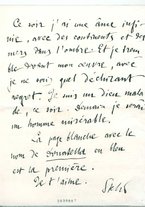 Ce soir j'ai une âme infi-
nie, avec des continents et des
mers dans l'ombre. Et je trem-
ble devant mon œuvre, avec
je ne sais quel déchirant
regret. Je suis un dieu mala-
de, ce soir. Demain je serai
un homme misérable.
La page blanche avec le
nom de Donatella en bleu
est la première.
Je t'aime.